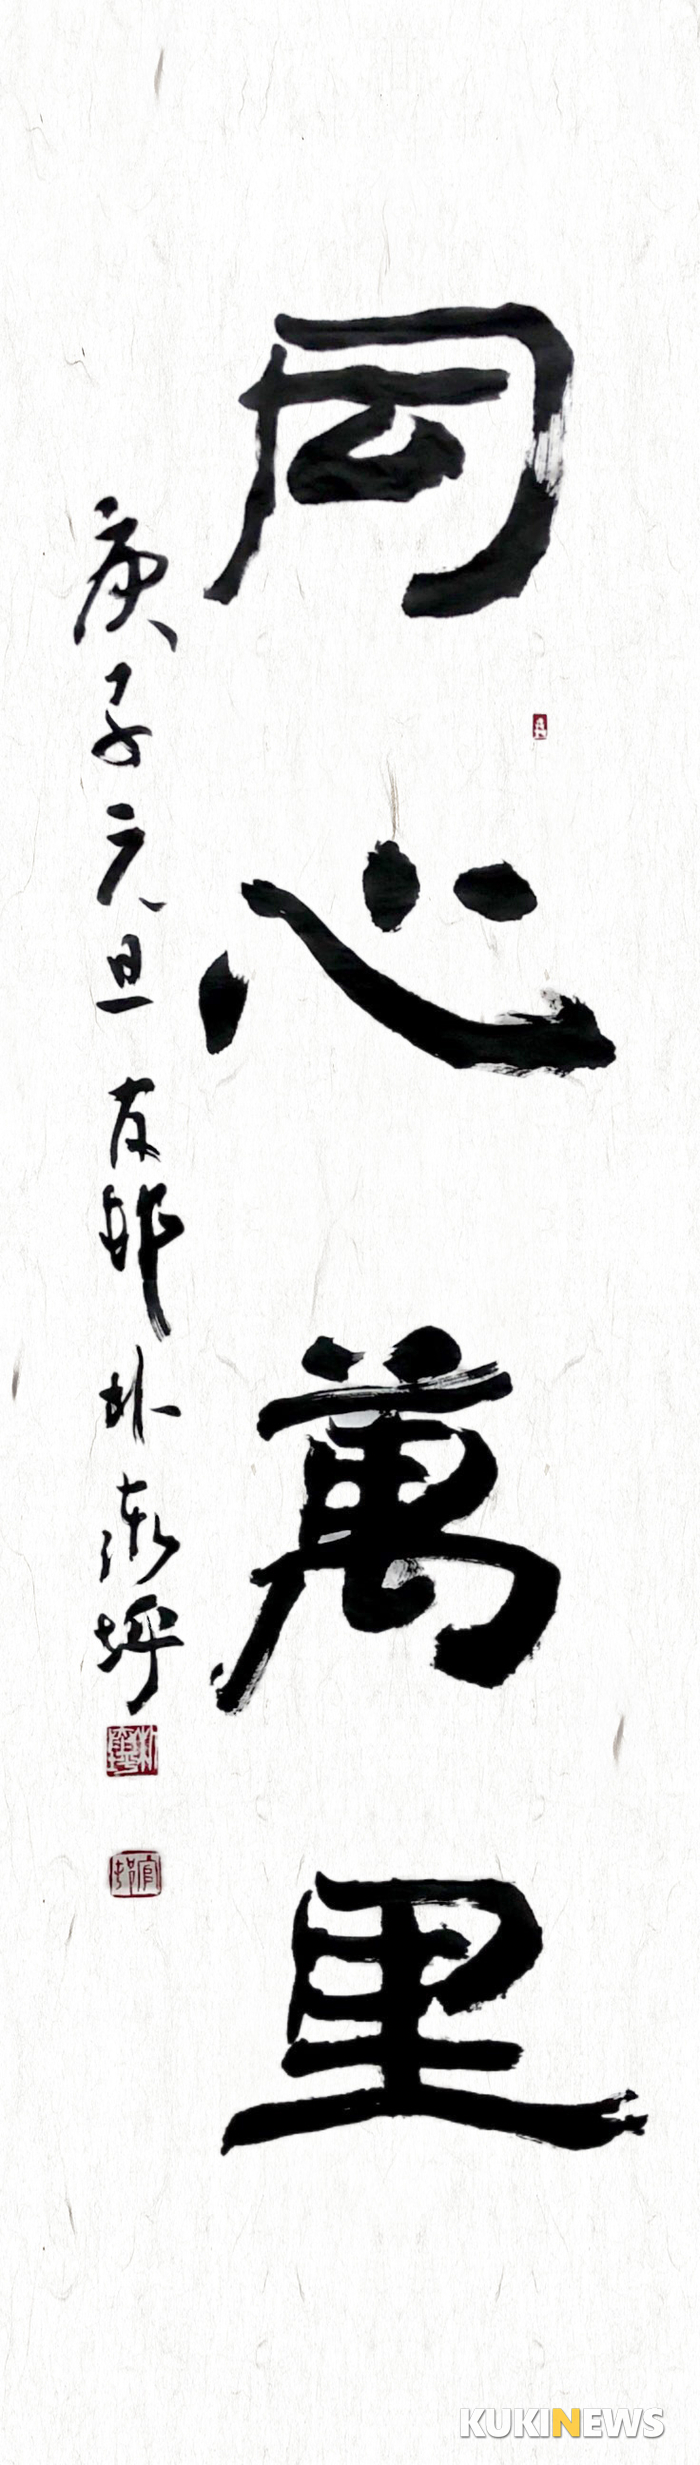 同心萬里
庚子元旦 友邨 朴永坪
KUKINEWS